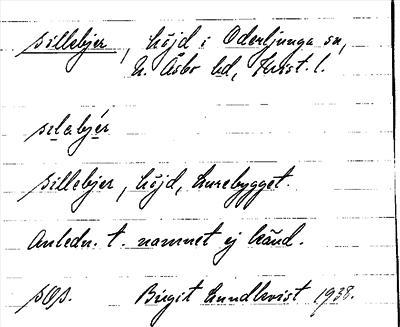 sillebjer, höjd i Oderljunga sn,
N. Åsbo hd, Krist. l.
sɪlabjér
sillebjer, höjd, Lurebygget.
Anledn. t. namnet ej känd.
sOs. Birgit Lundkvist 1938.